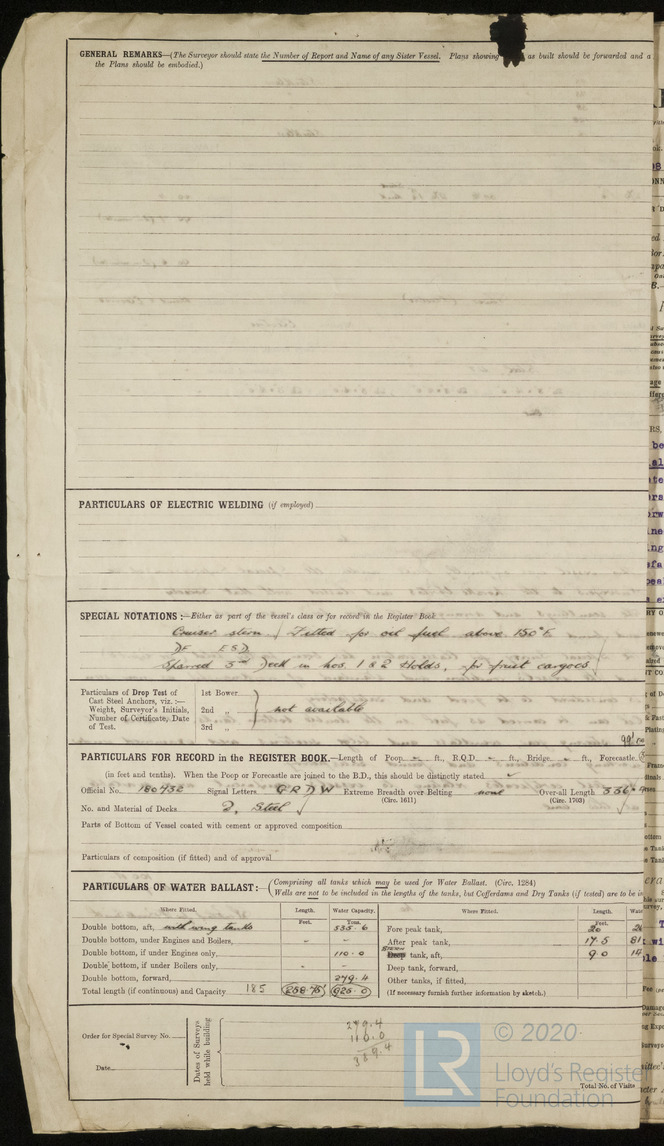 GENERAL REMARKS—(The Surveyor should state the Number of Report and Name of any Sister Vessel. Plans showing as built should be forwarded and a
the Plans should be embodied.)
PARTICULARS OF ELECTRIC WELDING (if employed)
SPECIAL NOTATIONS:—Either as part of the vessel's class or for record in the Register Book
Cruiser stern / Fitted for oil fuel above 150°F.
DF ESD
Sparred 3rd Deck in nos. 1 & 2 Holds, for fruit cargoes
Particulars of Drop Test of
Cast Steel Anchors, viz. :—
Weight, Surveyor's Initials,
Number of Certificate, Date
of Test.
1st Bower
2nd „
3rd „
not available
PARTICULARS FOR RECORD in the REGISTER BOOK.—Length of Poop - ft., R.Q.D. - ft., Bridge - ft., Forecastle
(in feet and tenths). When the Poop or Forecastle are joined to the B.D., this should be distinctly stated
Official No. 180930 Signal Letters GRDW Extreme Breadth over Belting none Over-all Length
(Circ. 1611) (Circ. 1703)
No. and Material of Decks 2, Steel
Parts of Bottom of Vessel coated with cement or approved composition
Particulars of composition (if fitted) and of approval
PARTICULARS OF WATER BALLAST:—(Comprising all tanks which may be used for Water Ballast. (Circ. 1284)
Wells are not to be included in the lengths of the tanks, but Cofferdams and Dry Tanks (if tested) are to be in
Where Fitted. Length. Water Capacity. Where Fitted. Length.
Feet. Tons. Feet.
Double bottom, aft, with wing tanks 535.6 Fore peak tank, 20
Double bottom, under Engines and Boilers, - - After peak tank, 17.5
Double bottom, if under Engines only, 110.0 Deep tank, aft, 9.0
Double bottom, if under Boilers only, - - Deep tank, forward,
Double bottom, forward, 279.4 Other tanks, if fitted,
Total length (if continuous) and Capacity 185 258.75 925.0 (If necessary furnish further information by sketch.)
Order for Special Survey No.
Date
Dates of Surveys
held while building
279.4
110.0
389.4
Total No. of Visits
LR
© 2020
Lloyd's Register
Foundation